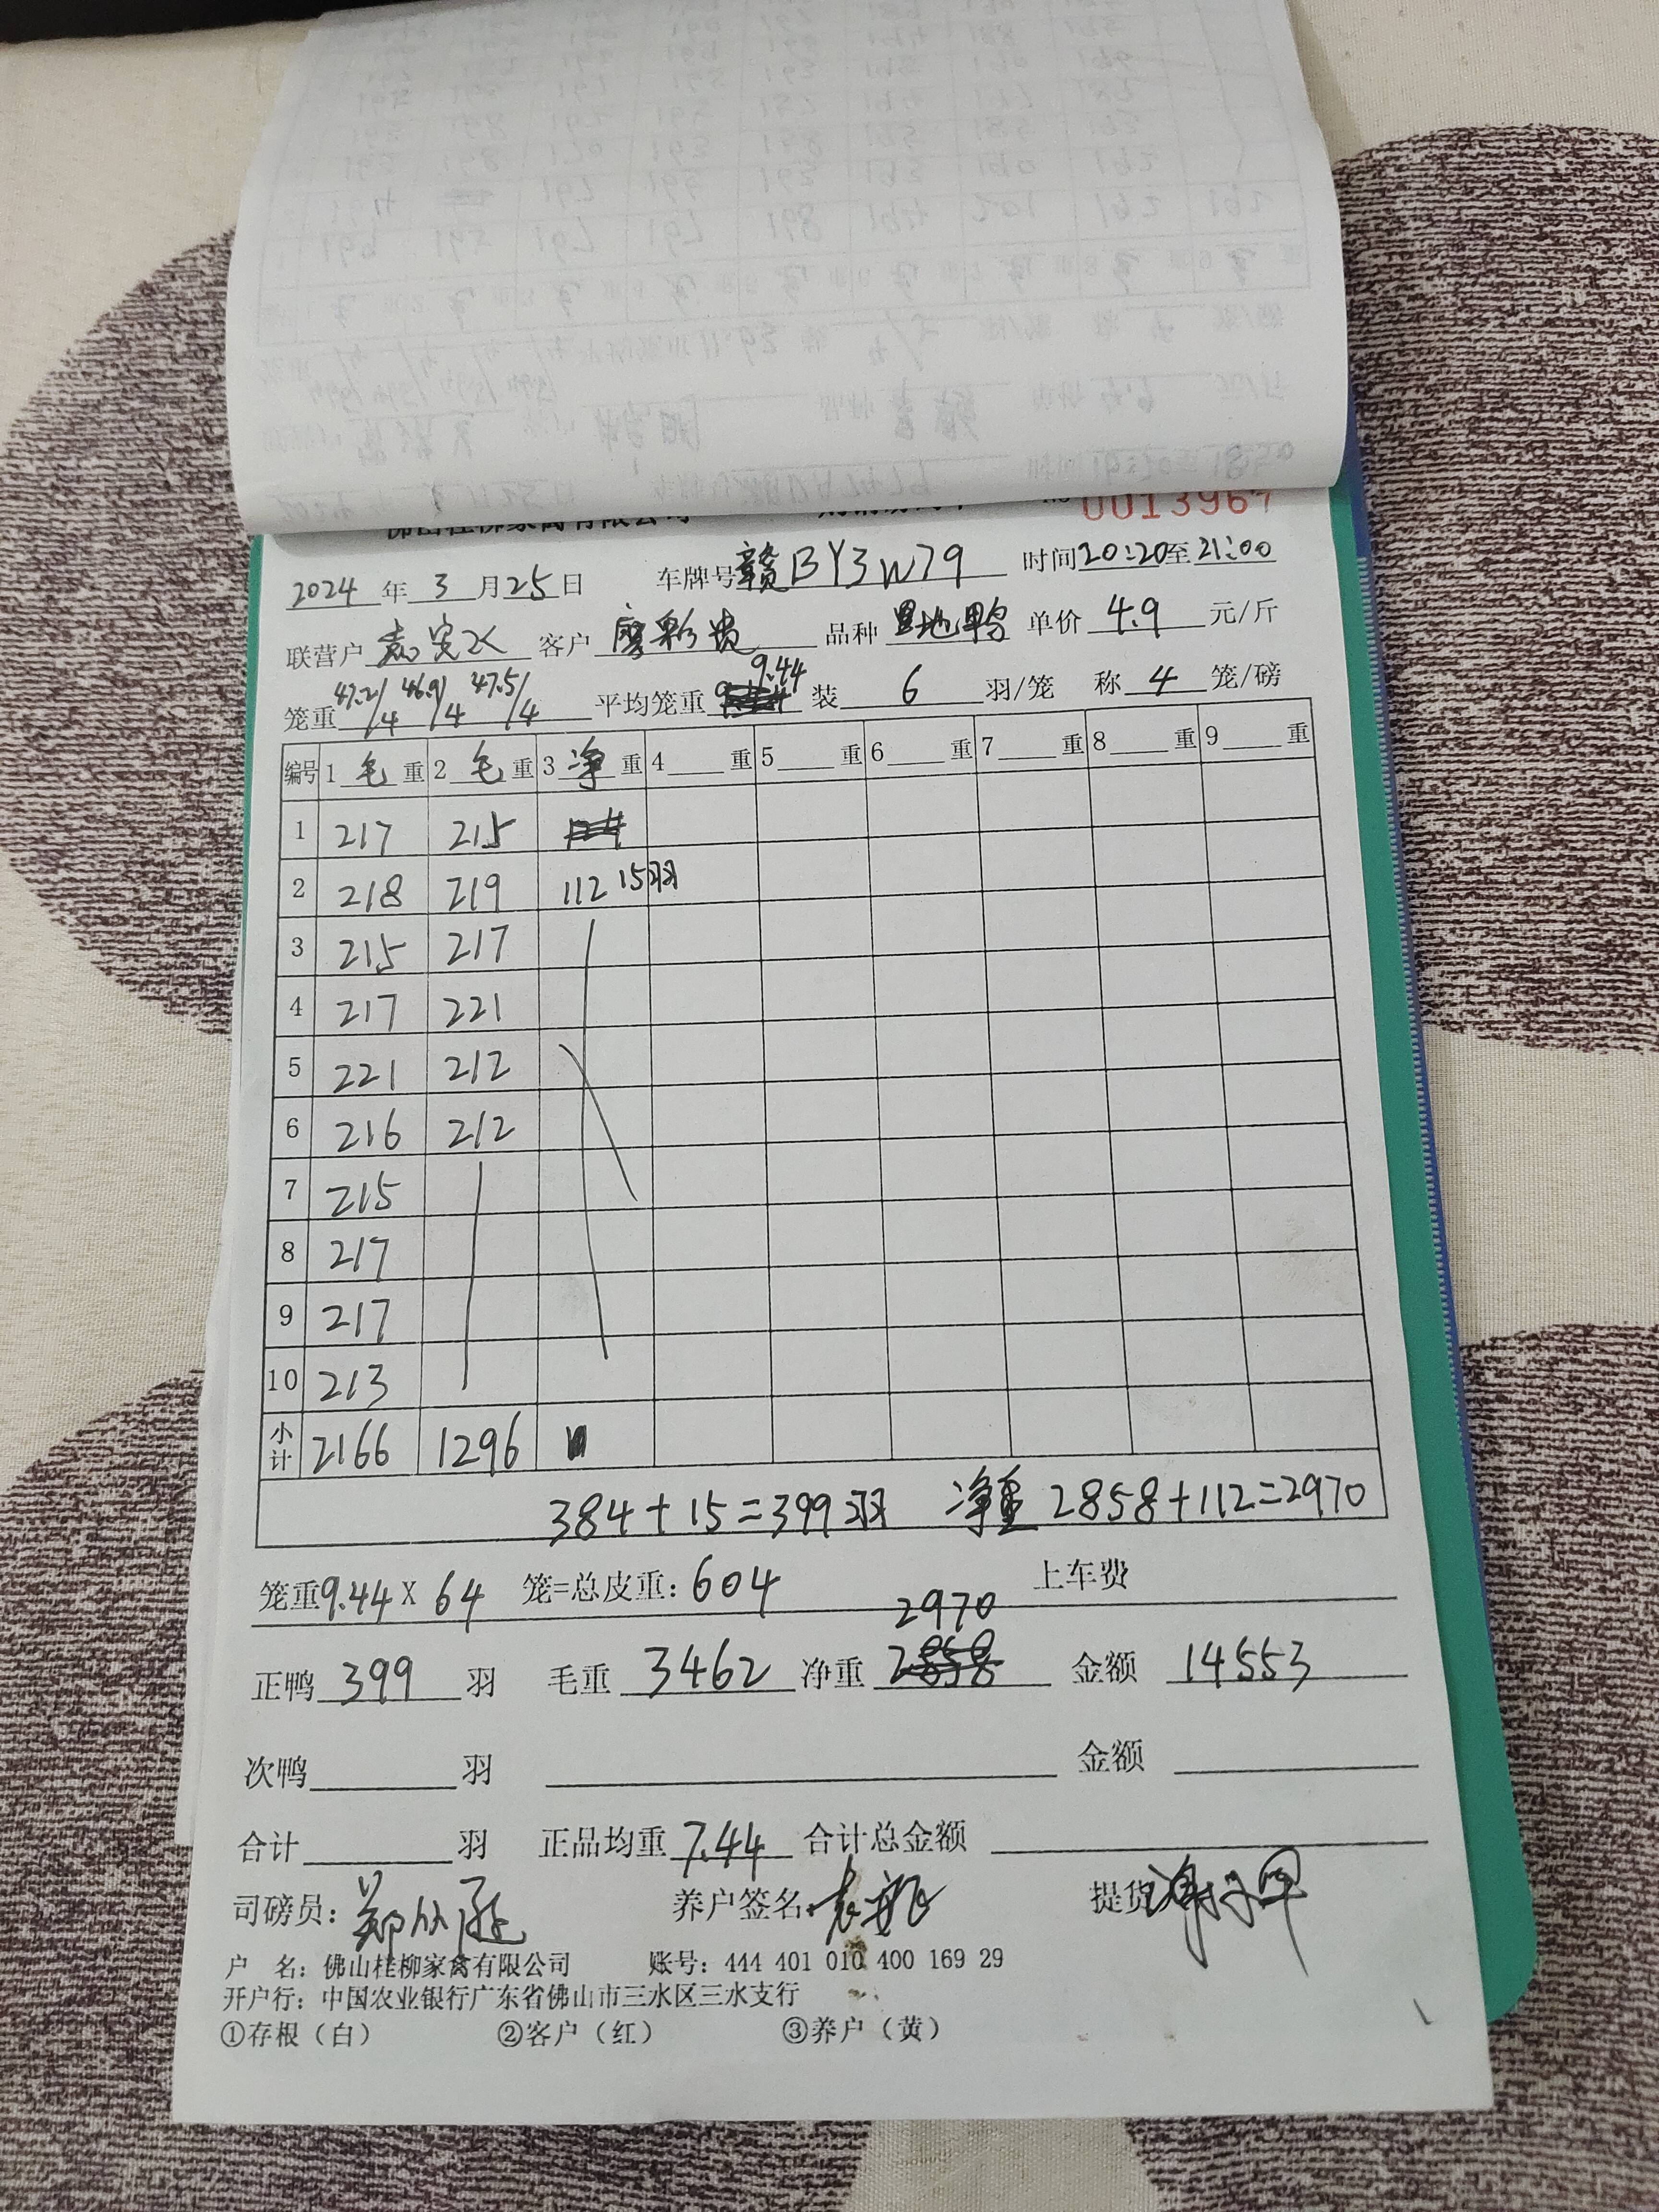 0013967
2024 年 3 月 25 日 车牌号 赣BY3W79 时间 20:20 至 21:00
联营户 客户 廖彩贵 品种 单价 4.9 元/斤
笼重 47.2/4 46.9/4 47.5/4 平均笼重 9.44 装 6 羽/笼 称 4 笼/磅
编号 1 毛 重 2 毛 重 3 净 重 4 重 5 重 6 重 7 重 8 重 9 重
1 217 215
2 218 219 112 15羽
3 215 217
4 217 221
5 221 212
6 216 212
7 215
8 217
9 217
10 213
小计 2166 1296
384+15=399羽 净重 2858+112=2970
笼重 9.44 X 64 笼=总皮重: 604 上车费
2970
正鸭 399 羽 毛重 3462 净重 2858 金额 14553
次鸭 羽 金额
合计 羽 正品均重 7.44 合计总金额
司磅员: 养户签名 提货
户 名: 佛山桂柳家禽有限公司 账号: 444 401 010 400 169 29
开户行: 中国农业银行广东省佛山市三水区三水支行
①存根（白） ②客户（红） ③养户（黄）